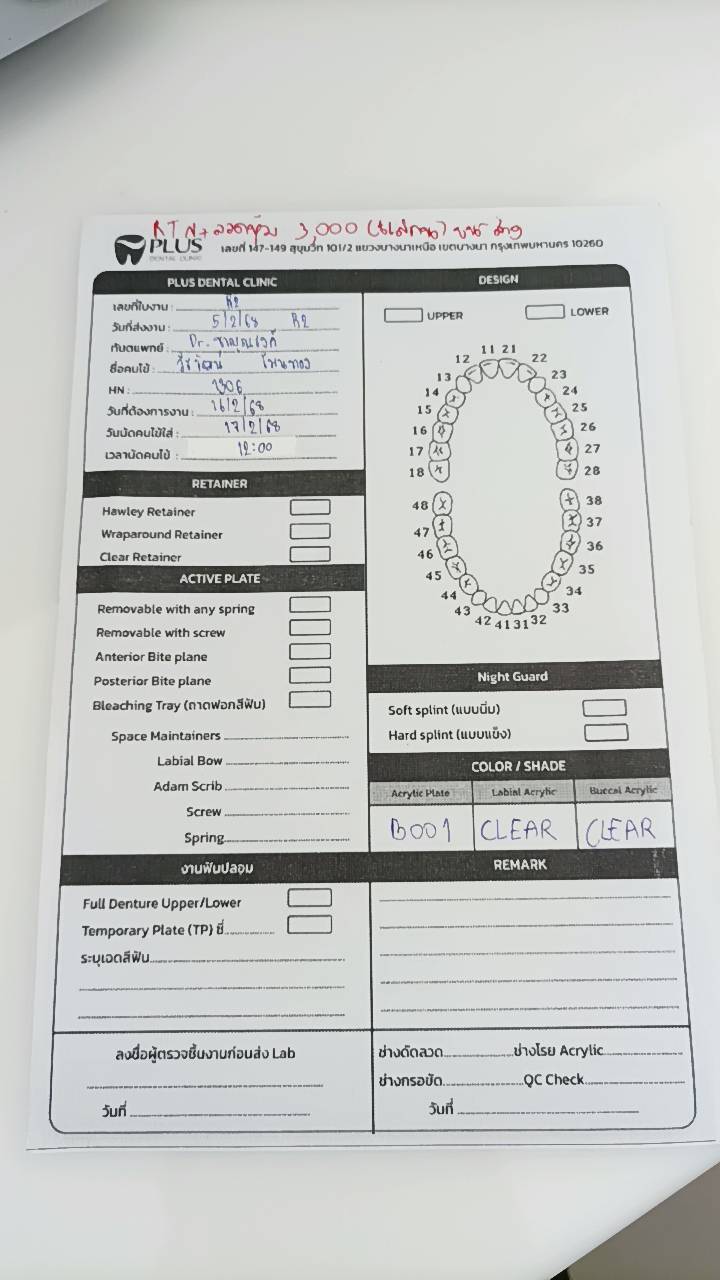 RTN+ลวดหุ้ม 3,000
PLUS
DENTAL CLINIC
เลขที่ 147-149 สุขุมวิท 101/2 แขวงบางนาเหนือ เขตบางนา กรุงเทพมหานคร 10260
PLUS DENTAL CLINIC
เลขที่ใบงาน : R2
วันที่ส่งงาน : 5/2/68 R2
ทันตแพทย์ : Dr.
ชื่อคนไข้ :
HN : 1306
วันที่ต้องการงาน : 16/2/68
วันนัดคนไข้ใส่ : 17/2/68
เวลานัดคนไข้ : 12:00
RETAINER
Hawley Retainer
Wraparound Retainer
Clear Retainer
ACTIVE PLATE
Removable with any spring
Removable with screw
Anterior Bite plane
Posterior Bite plane
Bleaching Tray (ถาดฟอกสีฟัน)
Space Maintainers
Labial Bow
Adam Scrib
Screw
Spring
DESIGN
UPPER LOWER
11 21
12 22
13 23
14 24
15 25
16 26
17 27
18 28
48 38
47 37
46 36
45 35
44 34
43 33
42 41 31 32
Night Guard
Soft splint (แบบนิ่ม)
Hard splint (แบบแข็ง)
COLOR / SHADE
Acrylic Plate Labial Acrylic Buccal Acrylic
B001 CLEAR CLEAR
งานฟันปลอม
Full Denture Upper/Lower
Temporary Plate (TP) ซี่
ระบุเฉดสีฟัน
REMARK
ลงชื่อผู้ตรวจชิ้นงานก่อนส่ง Lab
วันที่
ช่างดัดลวด ช่างโรย Acrylic
ช่างกรอขัด QC Check
วันที่